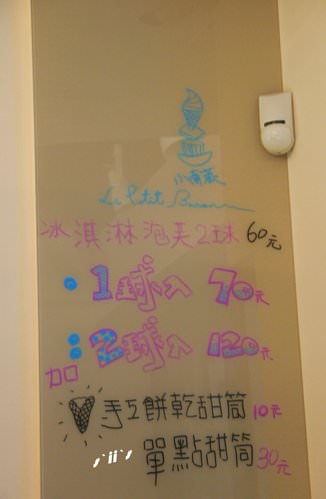 冰淇淋泡芙2球 60元
1球 70元
2球 120元
加
手工餅乾甜筒 10元
單點甜筒 30元